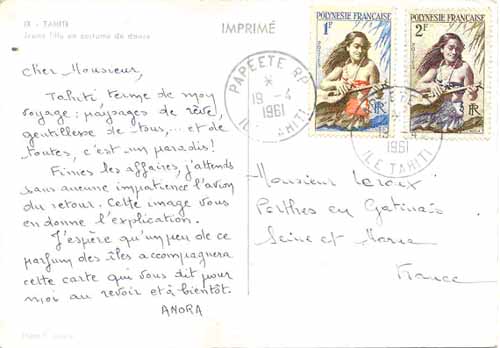 IX - TAHITI
Jeune fille en costume de danse
IMPRIMÉ
Cher Monsieur,
Tahiti, terme de mon
voyage : paysages de rêve,
gentillesse de tous,... et de
toutes, c'est un paradis!
Finies les affaires, j'attends
sans aucune impatience l'avion
du retour. Cette image vous
en donne l'explication.
J'espère qu'un peu de ce
parfum des îles accompagnera
cette carte qui vous dit pour
moi au revoir et à bientôt.
AMORA
PAPEETE RP
19 - 4
1961
ILE TAHITI
POLYNESIE FRANÇAISE
1F
RF
POLYNESIE FRANÇAISE
2F
RF
PAPEETE
1961
ILE TAHITI
Monsieur Leroux
Perthes en Gatinais
Seine et Marne
France